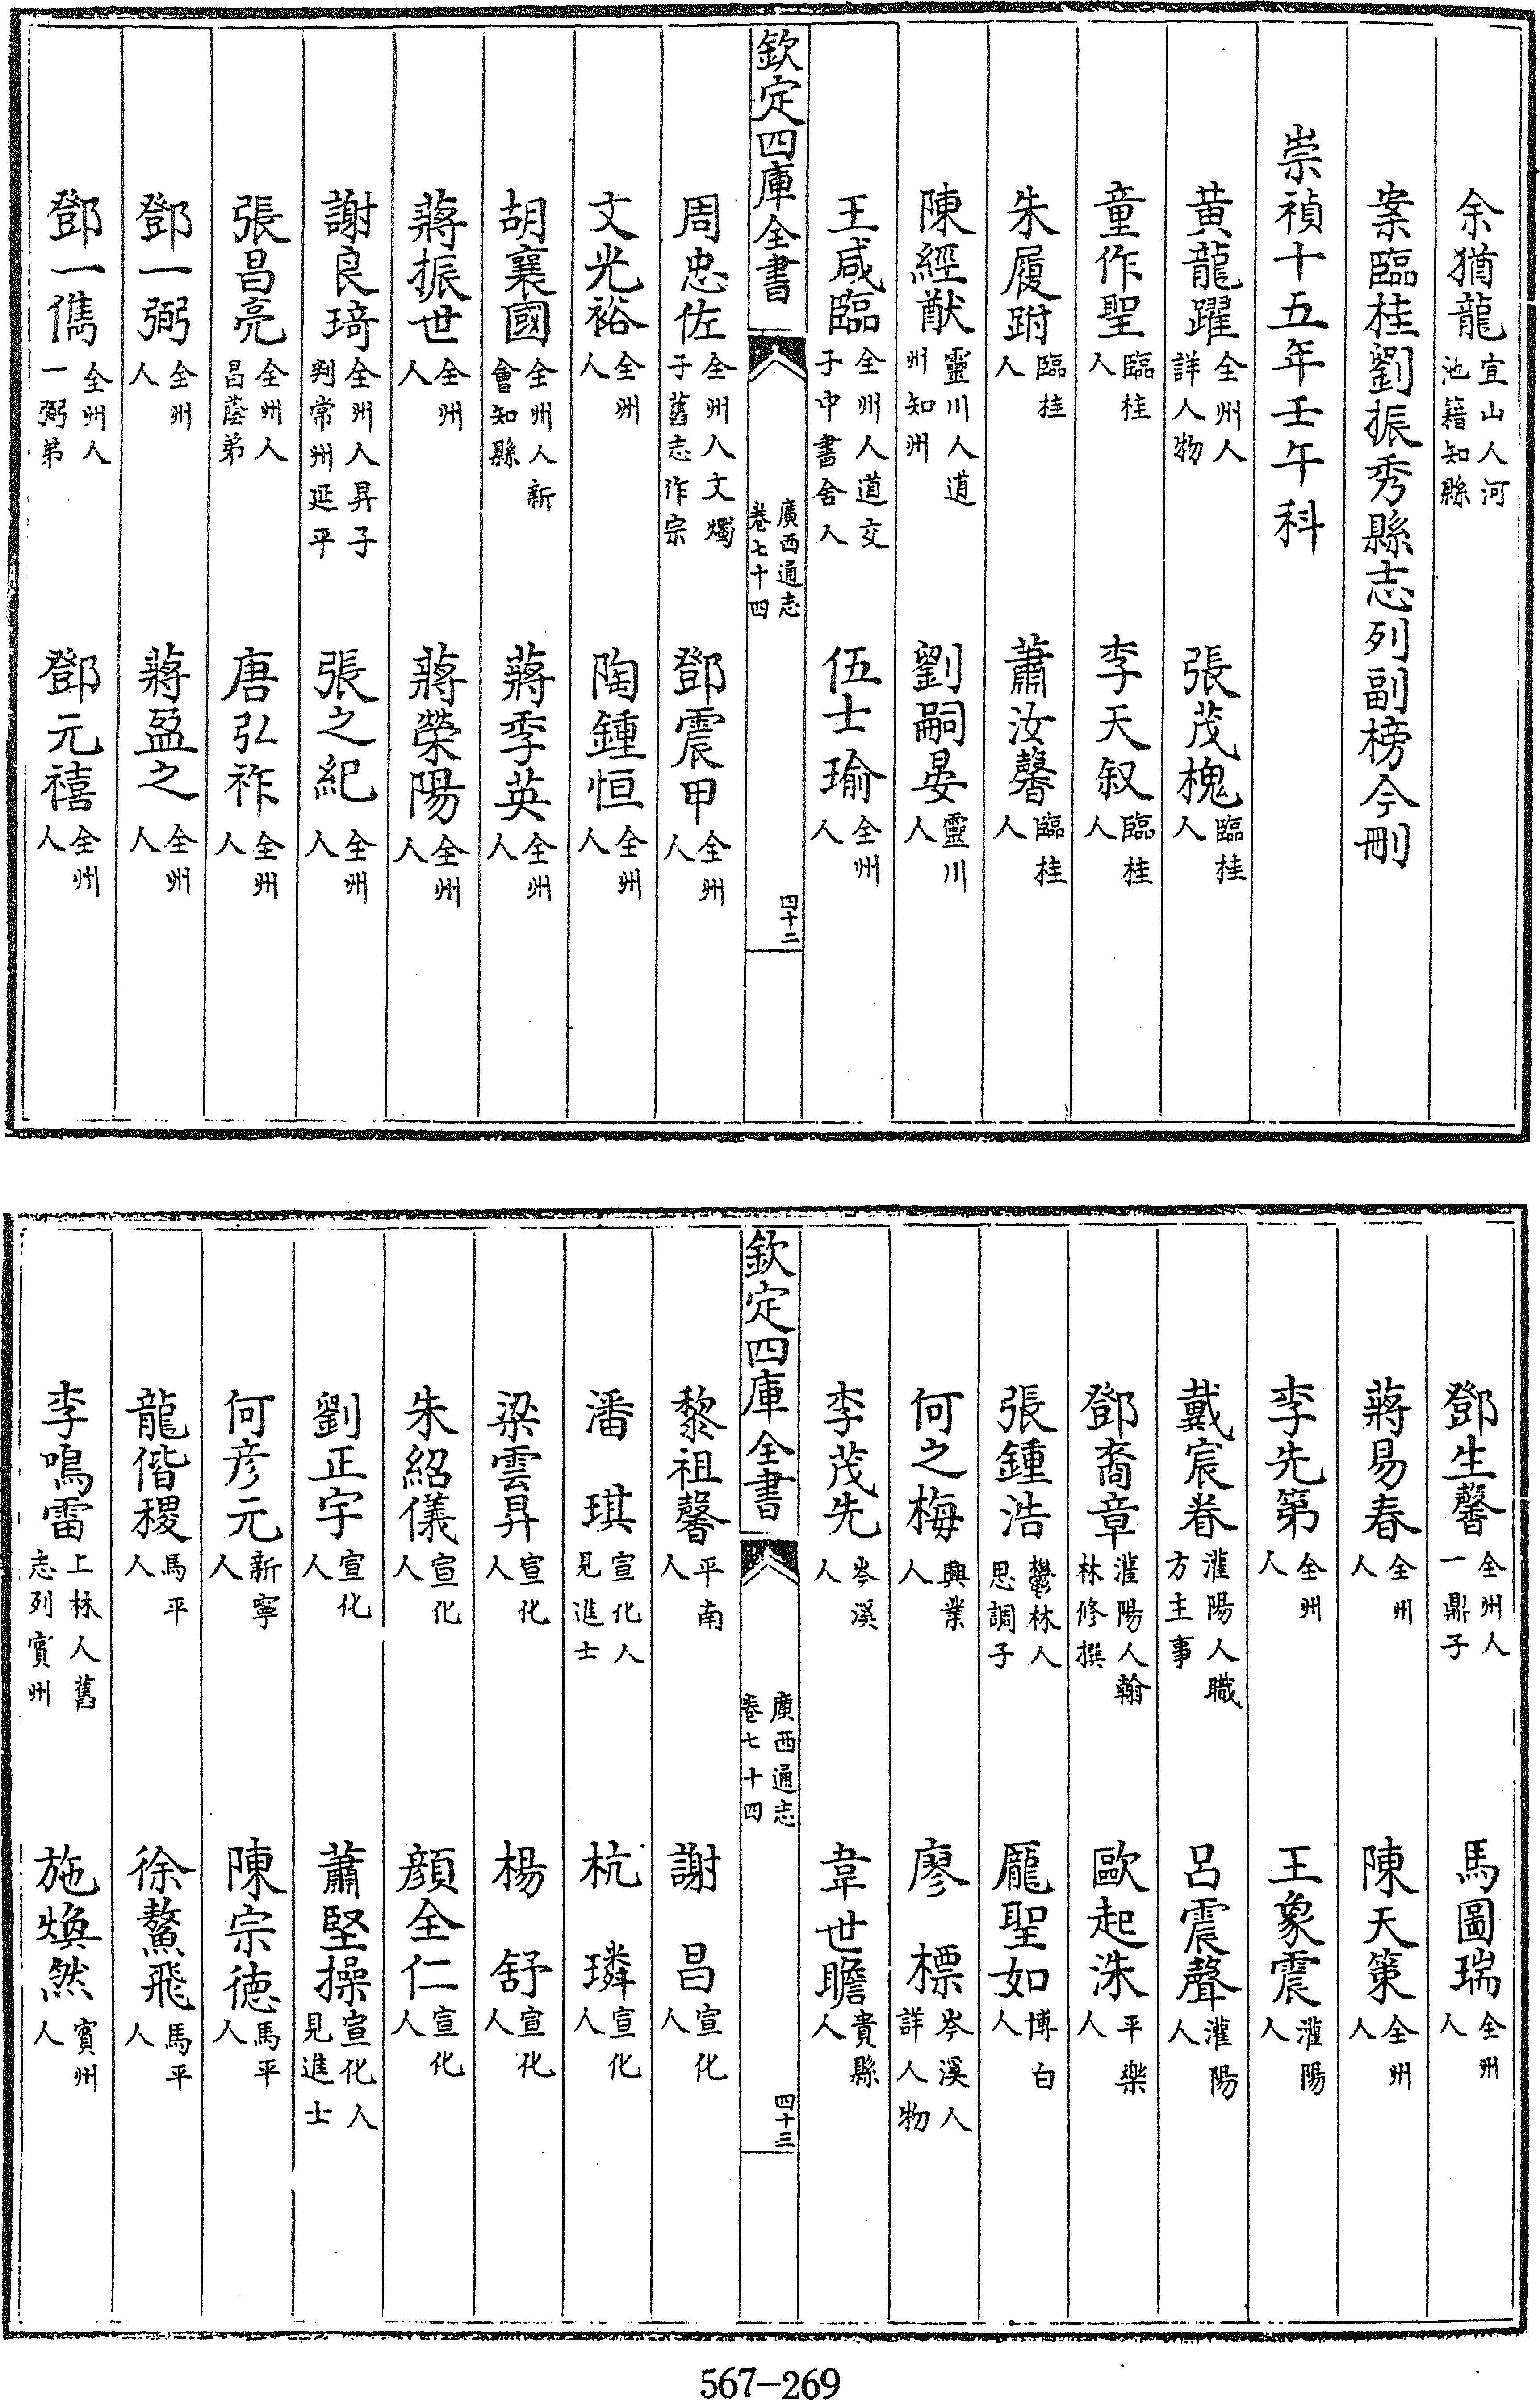 余猶龍宜山人河池籍知縣
案臨桂劉振秀縣志列副榜今刪
崇禎十五年壬午科
黃龍躍全州人詳人物　張茂槐臨桂人
童作聖臨桂人　李天叙臨桂人
朱履跗臨桂人　蕭汝馨臨桂人
陳經猷靈川人道州知州　劉嗣晏靈川人
王咸臨全州人道交子中書舍人　伍士瑜全州人
欽定四庫全書　廣西通志卷七十四　四十二
周忠佐全州人文燭子舊志作宗　鄧震甲全州人
文光裕全州人　陶鍾恒全州人
胡襄國全州人新會知縣　蔣季英全州人
蔣振世全州人　蔣榮陽全州人
謝良琦全州人昇子判常州延平　張之紀全州人
張昌亮全州人昌蔭弟　唐弘祚全州人
鄧一弼全州人　蔣盈之全州人
鄧一儁全州人一弼弟　鄧元禧全州人
鄧生馨全州人一鼎子　馬圖瑞全州人
蔣易春全州人　陳天策全州人
李先第全州人　王象震灌陽人
戴宸眷灌陽人職方主事　呂震聲灌陽人
鄧裔章灌陽人翰林修撰　歐起洙平樂人
張鍾浩鬱林人思調子　龎聖如博白人
何之梅興業人　廖標岑溪人詳人物
李茂先岑溪人　韋世瞻貴縣人
欽定四庫全書　廣西通志卷七十四　四十三
黎祖馨平南人　謝昌宣化人
潘琪宣化人見進士　杭璘宣化人
梁雲昇宣化人　楊舒宣化人
朱紹儀宣化人　顏全仁宣化人
劉正宇宣化人　蕭堅操宣化人見進士
何彦元新寧人　陳宗德馬平人
龍偕稷馬平人　徐鰲飛馬平人
李鳴雷上林人舊志列賓州　施煥然賓州人
567-269